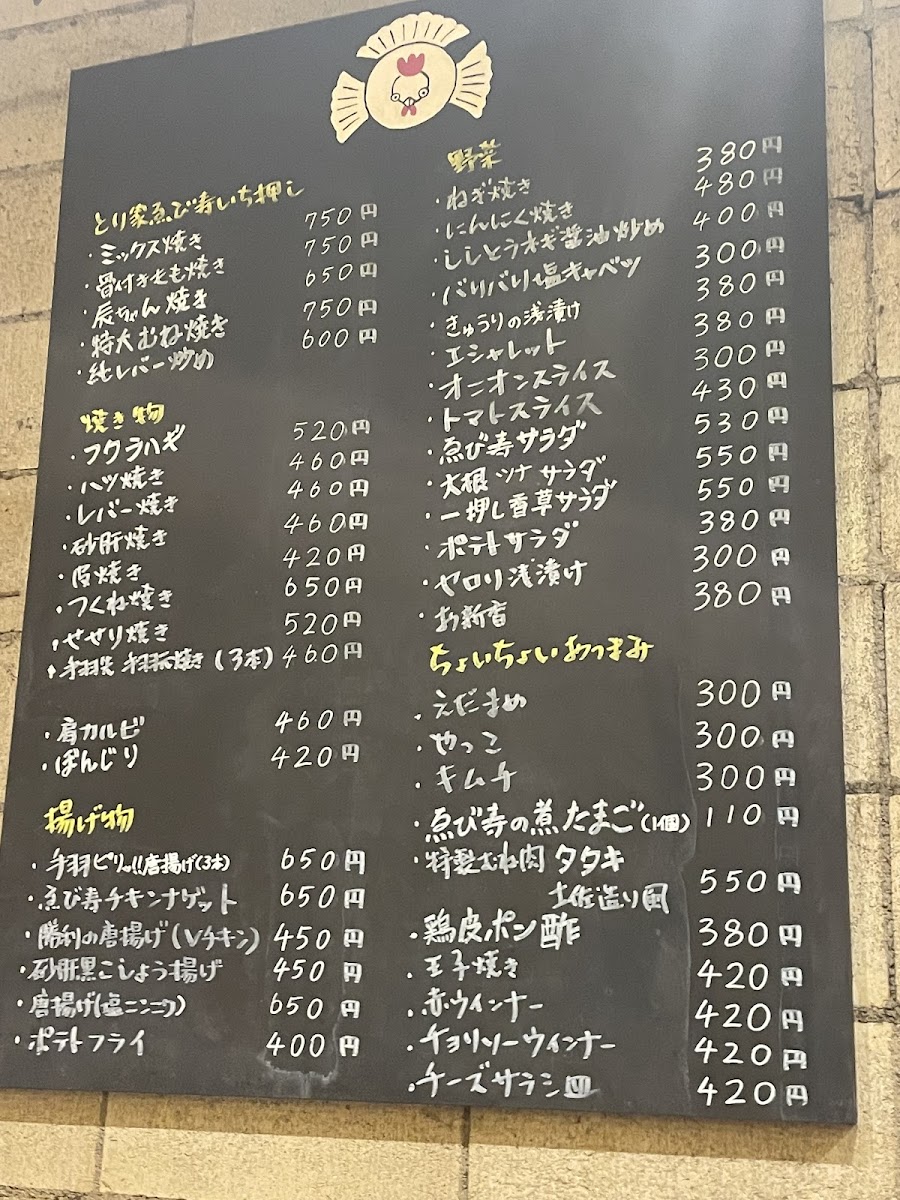 とり家ゑび寿いち押し
・ミックス焼き 750円
・骨付きもも焼き 750円
・辰ちゃん焼き 650円
・特大むね焼き 750円
・純レバー炒め 600円
焼き物
・フクラハギ 520円
・ハツ焼き 460円
・レバー焼き 460円
・砂肝焼き 460円
・皮焼き 420円
・つくね焼き 650円
・せせり焼き 520円
・手羽先 手羽元焼き(3本) 460円
・肩カルビ 460円
・ぼんじり 420円
揚げ物
・手羽ピリッ!!唐揚げ(3本) 650円
・ゑび寿チキンナゲット 650円
・勝利の唐揚げ(Vチキン) 450円
・砂肝黒こしょう揚げ 450円
・唐揚げ(塩ニンニク) 650円
・ポテトフライ 400円
野菜
・ねぎ焼き 380円
・にんにく焼き 480円
・ししとうネギ醤油炒め 400円
・バリバリ塩キャベツ 300円
・きゅうりの浅漬け 380円
・エシャレット 380円
・オニオンスライス 300円
・トマトスライス 430円
・ゑび寿サラダ 530円
・大根ツナサラダ 550円
・一押し香草サラダ 550円
・ポテトサラダ 380円
・セロリ浅漬け 300円
・お新香 380円
ちょいちょいおつまみ
・えだまめ 300円
・やっこ 300円
・キムチ 300円
・ゑび寿の煮たまご(1個) 110円
・特製むね肉タタキ
土佐造り風 550円
・鶏皮ポン酢 380円
・玉子焼き 420円
・赤ウィンナー 420円
・チョリソーウィンナー 420円
・チーズサラミ皿 420円